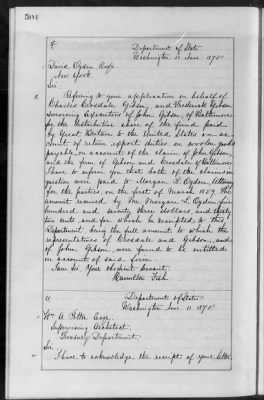 504
Department of State
Washington 11 June 1875
David Ogden Esqr
New York
Sir
Refering to your application on behalf of
Charles Crosdale Gibson, and Frederick Gibson
surviving Executors of John Gibson, of Baltimore
for the distributive share of the fund paid
by Great Britain to the United States on ac
count of return export duties, on woolen goods
payable, on account of the claim of John Gibson,
and the firm of Gibson and Crosdale of Baltimore
I have to inform you that both of the claims in
question were paid to Morgan L. Ogden, Attorney
for the parties, on the first of March 1859. The
amount received by Mr Morgan L. Ogden five
hundred and seventy three dollars, and thirty
two cents and for which he receipted, to this
Department being the full amount to which the
representatives of Crosdale and Gibson, and
of John Gibson, were found to be entitled
on account of said fund.
I am Sir, Your obedient Servant,
Hamilton Fish.
Department of State
Washington June 11 1875
Wm A. Potter Esqr.
Supervising Architect,
Treasury Department.
Sir
I have to acknowledge the receipt of your letter